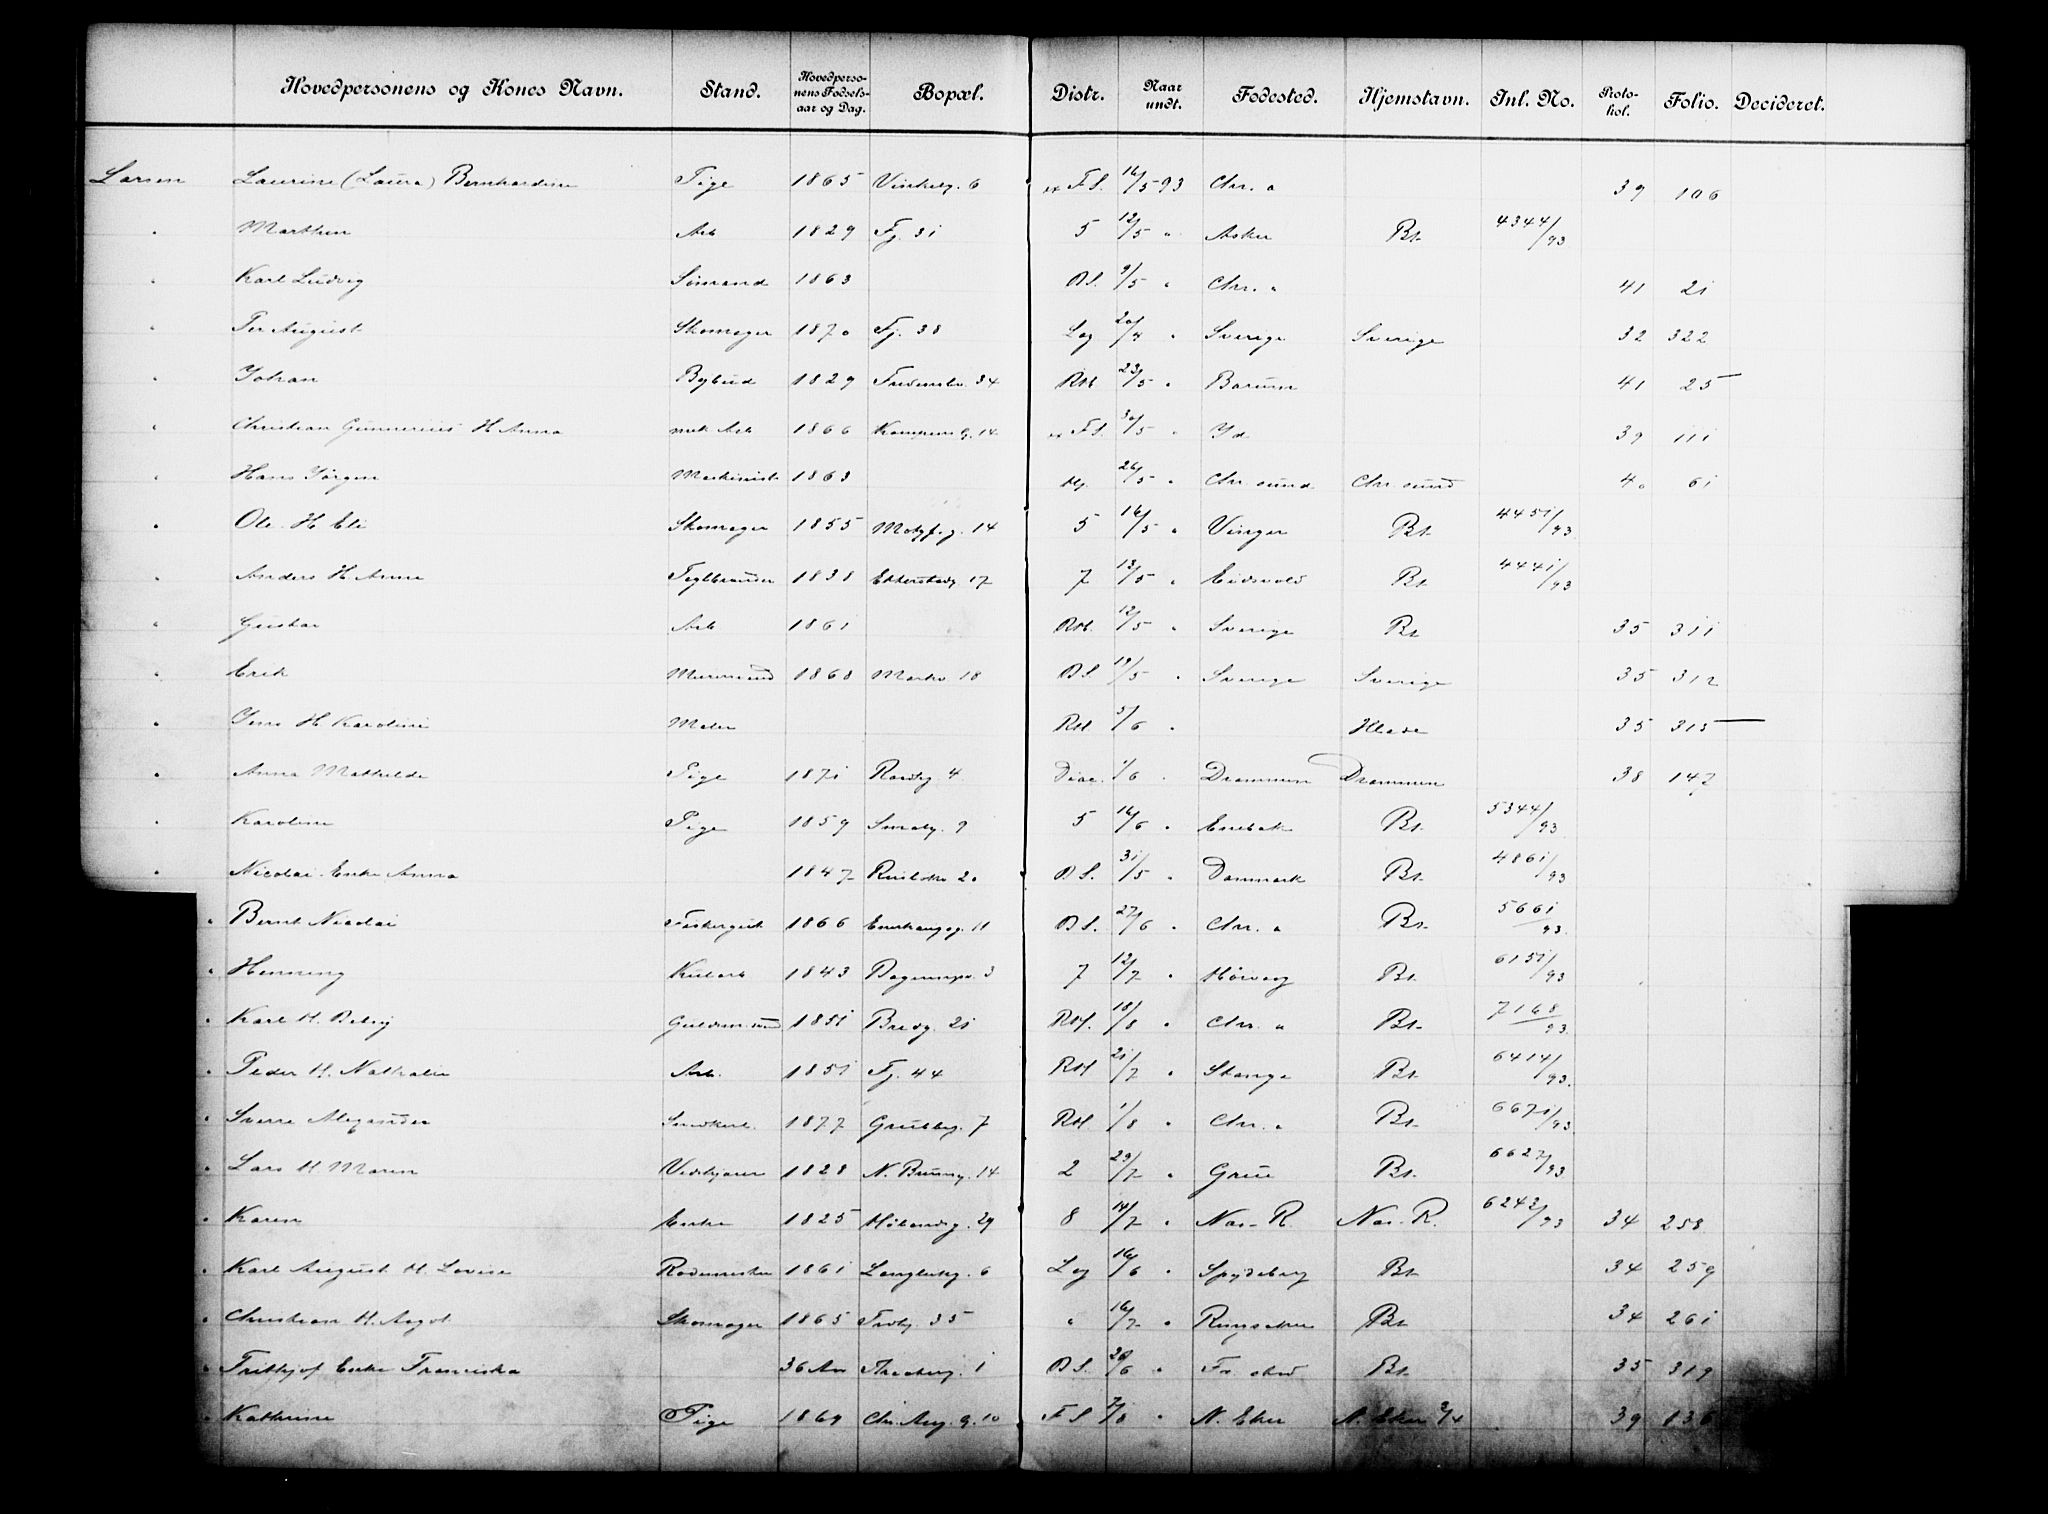 Hovedpersonens og Kones Navn. Stand. Hovedpersonens Fødselsaar og Dag. Bopæl. Distr. Naar undt. Fødested. Hjemstavn. Inl. No. Protokol. Folio. Decideret.
Larsen Laurine (Laura) Bernhardine Pige 1865 6 FS. 16/5 93 Chr. a 39 106
" Marthin Arb 1829 Fj. 31 5 12/5 " Asker Bt. 4344/93
" Karl Ludvig Sømand 1863 DS. 9/5 " Chr. a 41 21
" Per August Skomager 1870 Fj. 38 Log 20/4 " Sverige Sverige 32 322
" Johan Bybud 1829 34 23/5 " Bærum 41 25 —
" Christian Gunnerius H Anna mek Arb 1866 Kampens g. 14 FS. 30/5 " Id 39 111
" Hans Jørgen Maskinist 1863 26/5 " Chr. sund Chr. sund 40 61
" Ole H Eli Skomager 1855 Motzf. g. 14 5 16/5 " Vinger Bt. 4451/93
" Anders H Anna Teglbrænder 1838 17 7 13/5 " Eidsvold Bt. 4441/93
" Gustav Arb 1861 12/5 " Sverige Bt. 35 311
" Erik Murersvend 1868 Markv 18 DS 19/5 " Sverige Sverige 35 312
" Jens H Karoline Maler 5/6 " 35 315 —
" Anna Mathilde Pige 1871 4 Diac. 1/6 " Drammen Drammen 38 147
" Karoline Pige 1859 Smalg. 9 5 16/6 " Enebak Bt. 5344/93
" Nicolai Enke Anna 1847 20 DS. 31/5 " Danmark Bt. 4861/93
" Bernt Nicolai 1866 Enerhaugsg. 11 DS. 27/6 " Chr. a Bt. 5661/93
" Henning 1843 3 7 12/7 " Bt. 6151/93
" Karl H. 1851 Bredg. 21 18/8 " Chr. a Bt. 7168/93
" Peder H. Nathalie Arb. 1851 Fj. 44 21/7 " Stange Bt. 6414/93
" Sverre Alexander 1877 Grubbeg. 7 1/8 " Chr. a Bt. 6671/93
" Lars H Maren Vedskjærer 1828 14 2 29/7 " Grue Bt. 6627/93
" Karen Enke 1825 29 8 14/7 " Nas-R. Nas-R. 6242/93 34 258
" Karl August H. Lovise Rodemester 1861 6 Log 16/6 " Spydeberg Bt. 34 259
" Christian H. Skomager 1865 35 " 16/7 " Ringsaker Bt. 34 261
" Frithjof Enke Franciska 36 Aar 1 DS. /6 " Fr. stad Bt. 35 319
" Kathrine Pige 1869 Chr. Aug. g. 10 FS 7/8 " N. Eker N. Eker 39 136